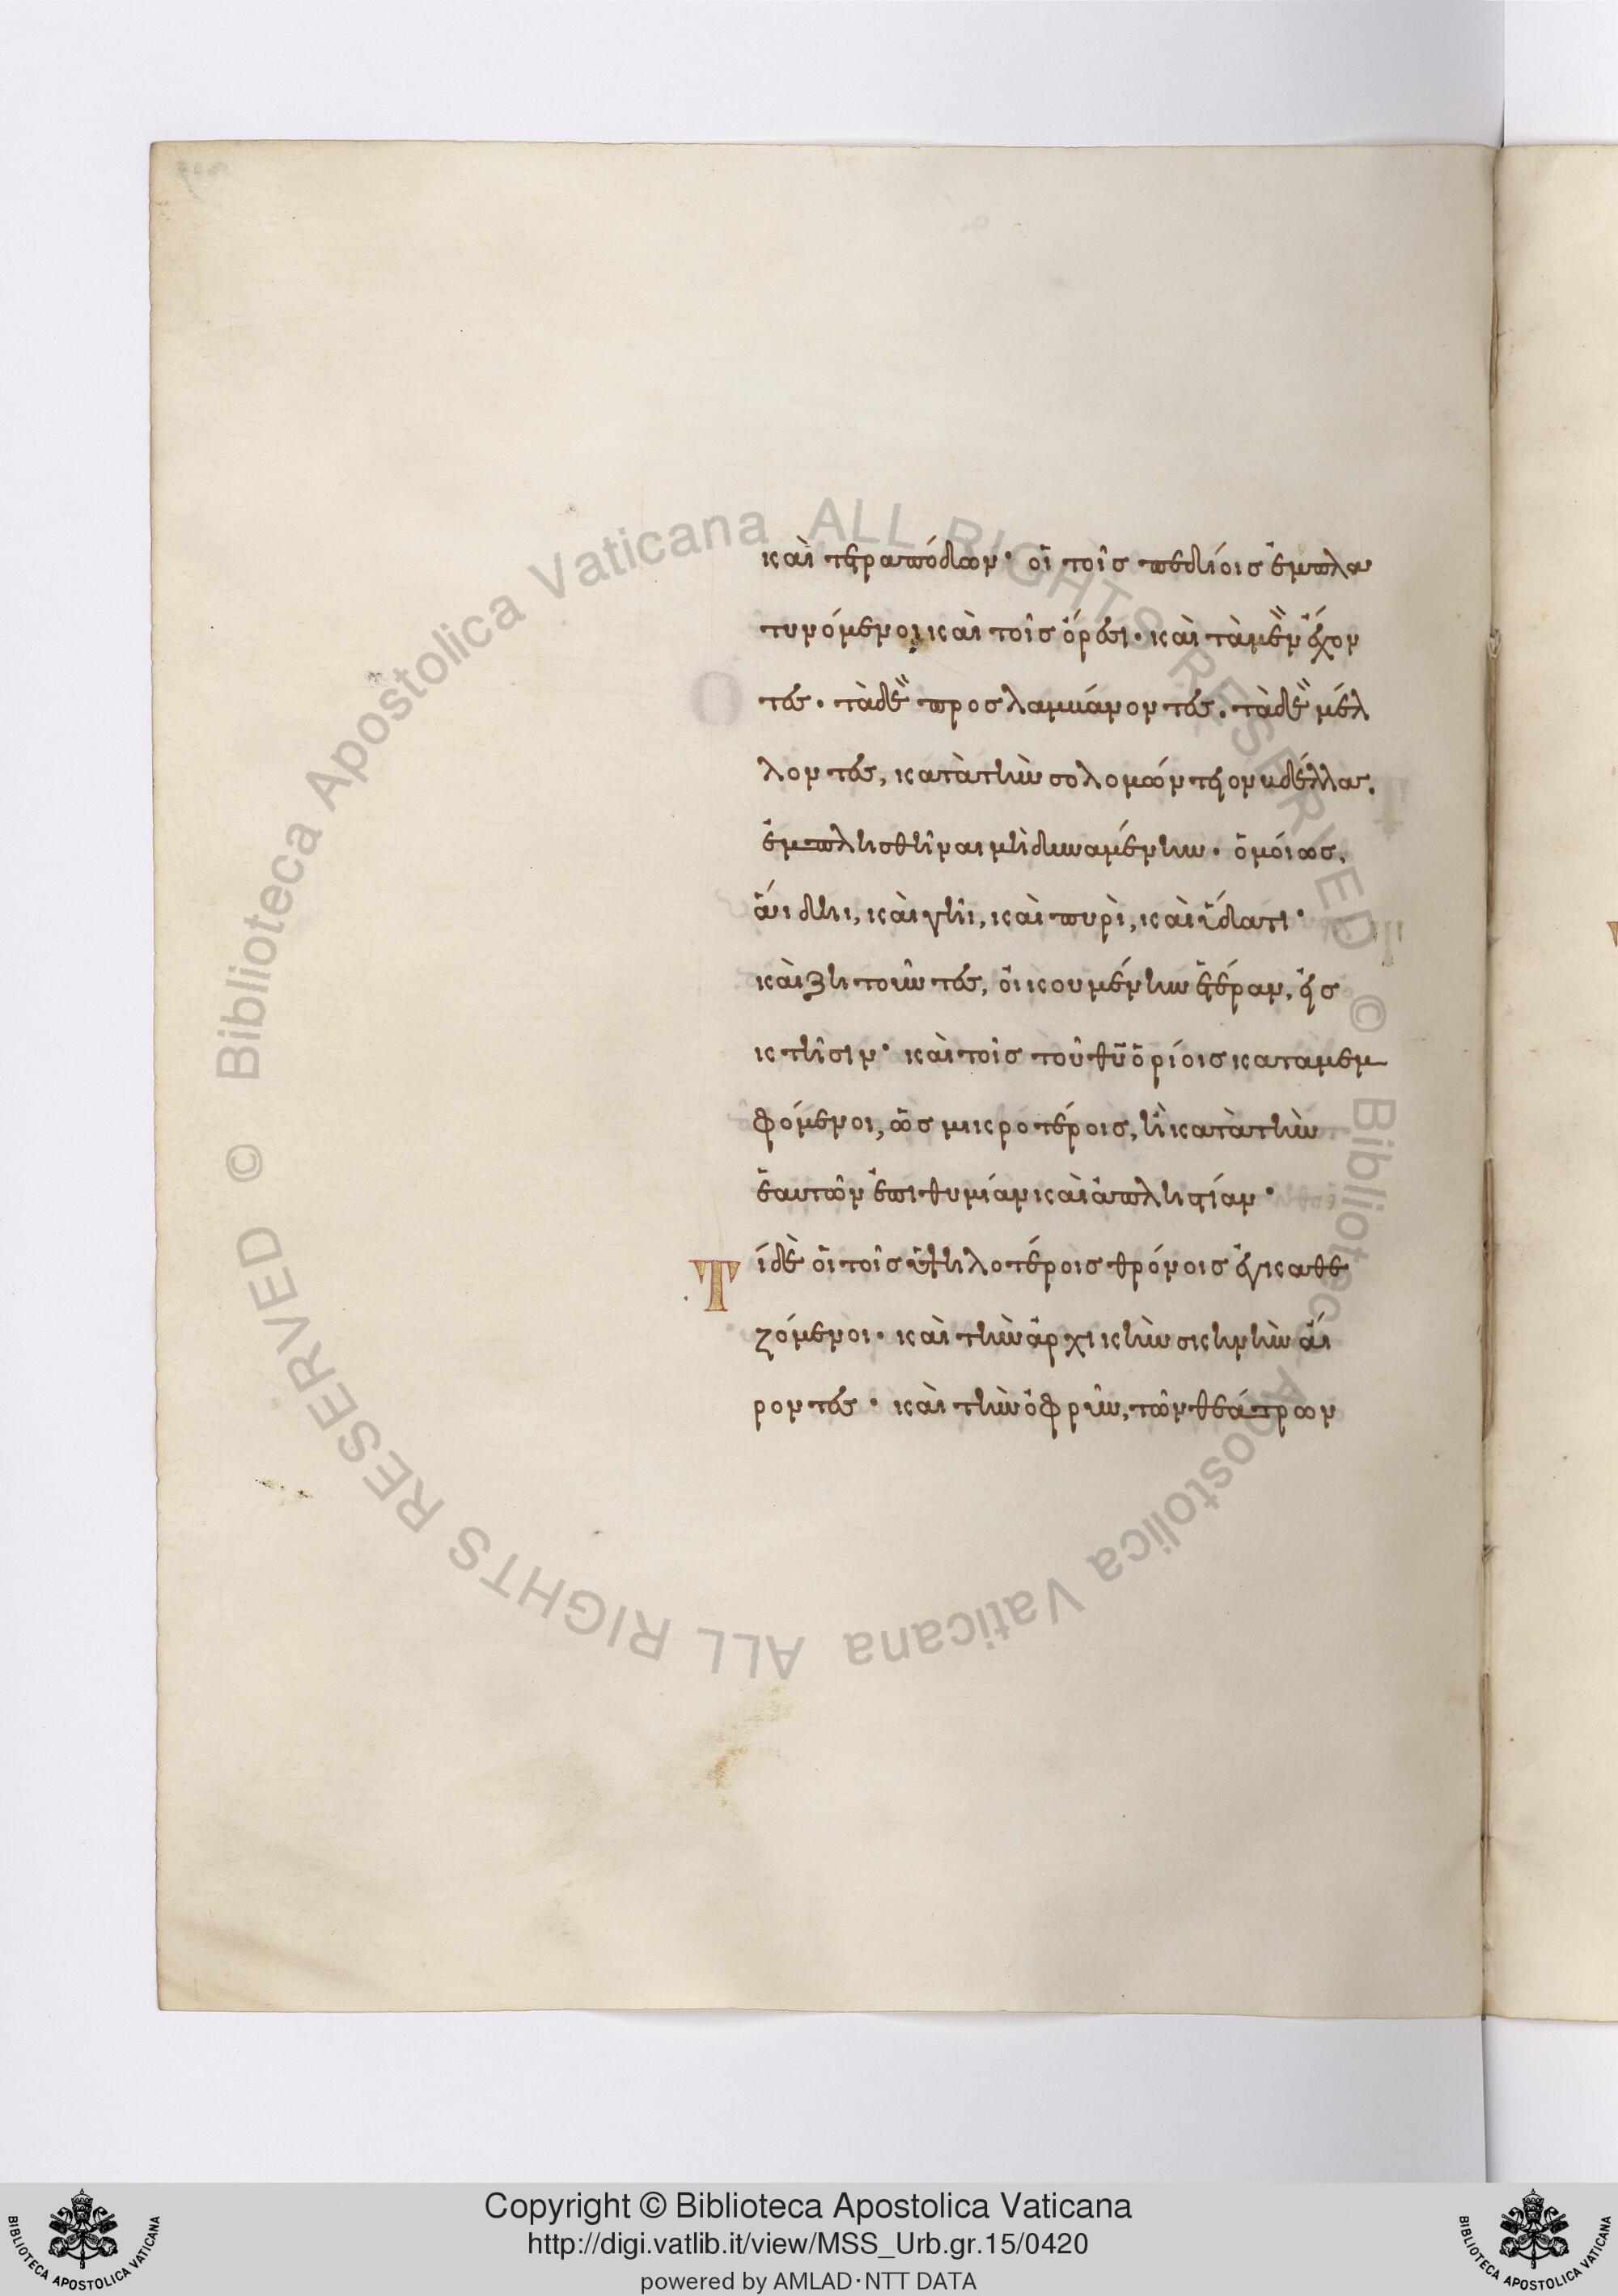 καὶ τετραπόδων· οἱ τοῖς πεδίοις ἐμπλα
τυνόμενοι καὶ τοῖς ὄρεσι· καὶ τὰ μὲν ἔχον
τες· τὰ δὲ προσλαμβάνοντες, τὰ δὲ μέλ
λοντες, κατὰ τὴν σολομώντειον βδέλλαν,
ἐμπλησθῆναι μὴ δυναμένην· ὁμοίως,
ἅιδηι, καὶ γῆι, καὶ πυρὶ, καὶ ὕδατι·
καὶ ζητοῦντες, οἰκουμένην ἑτέραν, εἰς
κτῆσιν· καὶ τοῖς τοῦ θῦ ὁρίοις καταμεμ
φόμενοι, ὡς μικροτέροις, ἢ κατὰ τὴν
ἑαυτῶν ἐπιθυμίαν καὶ ἀπληστίαν·
Τί δὲ οἱ τοῖς ὑψηλοτέροις θρόνοις ἐγκαθε
ζόμενοι· καὶ τὴν ἀρχικὴν σκηνὴν αἴ
ροντες· καὶ τὴν ὀφρῦν, τῶν θεάτρων
© Biblioteca Apostolica Vaticana ALL RIGHTS RESERVED
© Biblioteca Apostolica Vaticana ALL RIGHTS RESERVED
BIBLIOTECA APOSTOLICA VATICANA
Copyright © Biblioteca Apostolica Vaticana
http://digi.vatlib.it/view/MSS_Urb.gr.15/0420
powered by AMLAD·NTT DATA
BIBLIOTECA APOSTOLICA VATICANA